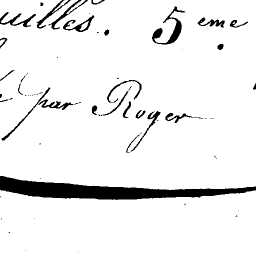 uilles. 5eme.
par Roger